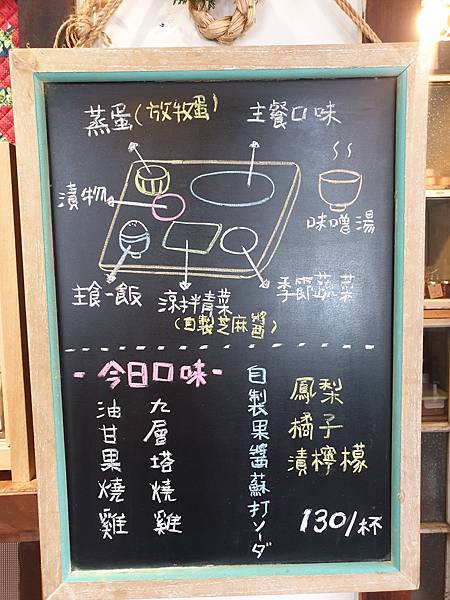 蒸蛋(放牧蛋)
主餐口味
漬物
味噌湯
主食-飯
涼拌青菜
(自製芝麻醬)
季節蔬菜
-今日口味-
九層塔燒雞
油甘果燒雞
自製果醬蘇打ソーダ
鳳梨
橘子
漬檸檬
130/杯